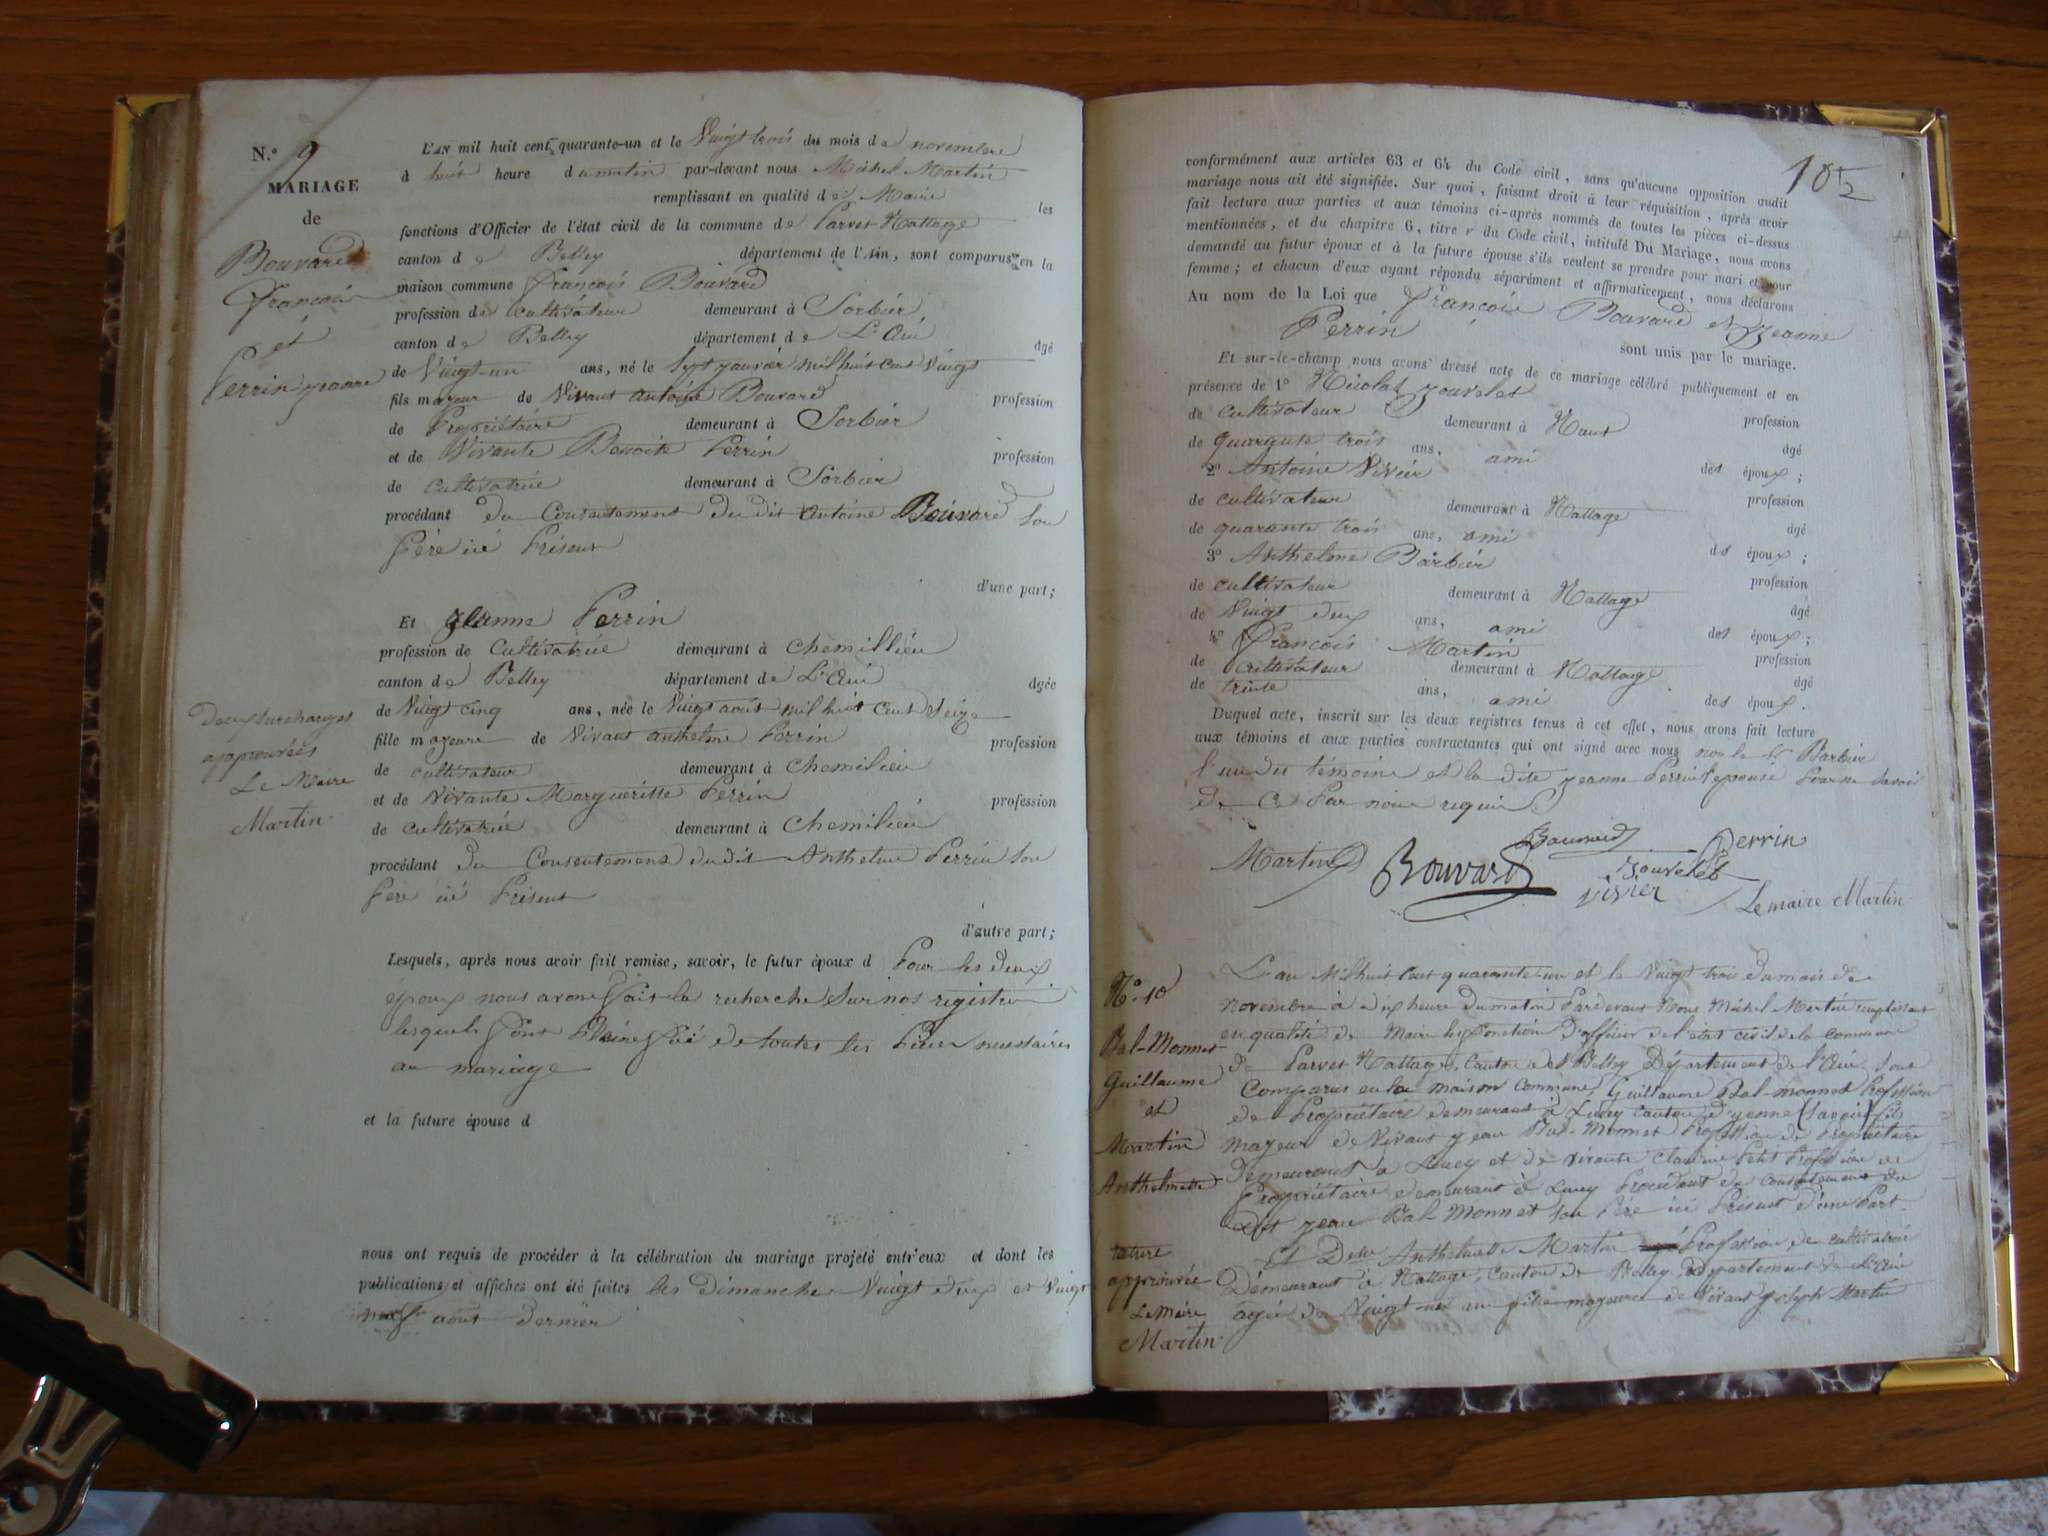 N.° 9
MARIAGE
de
Bouvard
François
et
Perrin jeanne
Deux surcharges
approuvées
Le Maire
Martin
L'AN mil huit cent quarante-un et le Vuigt trois du mois de novembre
à huit heure du matin par-devant nous Michel Martin
remplissant en qualité de Maire les
fonctions d'Officier de l'état civil de la commune de Parves Nattage
canton de Belley département de l'Ain, sont comparus en la
maison commune François Bouvard
profession de cultivateur demeurant à Sorbier
canton de Belley département de L'Ain âgé
de Vuigt-un ans, né le Sept janvier mil huit cent Vuigt
fils majeur de Vivant antoine Bouvard profession
de Propriétaire demeurant à Sorbier
et de Vivante Benoite Perrin profession
de cultivatrice demeurant à Sorbier
procédant du Consentement du dit antoine Bouvard Son
Père ici Présent
d'une part;
Et jeanne Perrin
profession de Cultivatrice demeurant à chemillieu
canton de Belley département de L'Ain âgée
de Vuigt cinq ans, née le Vuigt aout mil huit cent Seize
fille majeure de Vivant anthelme Perrin profession
de cultivateur demeurant à chemilieu
et de vivante Margueritte Perrin profession
de cultivatrice demeurant à chemilieu
procédant du Consentement du dit Anthelme Perrin Son
Père ici Présent
d'autre part;
Lesquels, après nous avoir fait remise, savoir, le futur époux d Pour les deux
époux nous avons fait la recherche Sur nos registres
lesquels font foi de toutes les Pièces necessaires
au mariage
et la future épouse d
nous ont requis de procéder à la célébration du mariage projeté entr'eux et dont les
publications et affiches ont été faites les dimanches Vuigt deux et Vuigt
neuf aout dernier
102
conformément aux articles 63 et 64 du Code civil, sans qu'aucune opposition audit
mariage nous ait été signifiée. Sur quoi, faisant droit à leur réquisition, après avoir
fait lecture aux parties et aux témoins ci-après nommés de toutes les pièces ci-dessus
mentionnées, et du chapitre 6, titre v du Code civil, intitulé Du Mariage, nous avons
demandé au futur époux et à la future épouse s'ils veulent se prendre pour mari et pour
femme; et chacun d'eux ayant répondu séparément et affirmativement, nous déclarons
Au nom de la Loi que François Bouvard et jeanne
Perrin sont unis par le mariage.
Et sur-le-champ nous avons dressé acte de ce mariage célébré publiquement et en
présence de 1° Nicolas jouvelet profession
de cultivateur demeurant à Nant âgé
de quarante trois ans, ami des époux;
2° Antoine Vivier profession
de cultivateur demeurant à Nattage âgé
de quarante trois ans, ami des époux;
3° Anthelme Barbier profession
de cultivateur demeurant à Nattage âgé
de Vuigt deux ans, ami des époux;
4° François Martin profession
de cultivateur demeurant à Nattage âgé
de trente ans, ami des époux.
Duquel acte, inscrit sur les deux registres tenus à cet effet, nous avons fait lecture
aux témoins et aux parties contractantes qui ont signé avec nous non le Sr Barbier
l'un des témoins et la dite jeanne Perrin l'epouse Pour ne Savoir
de Ce Par nous requis
Martin Bouvard Bouvard Perrin
Jouvelet
vivier Le maire Martin
N° 10
Bal-Monnet
Guillaume
et
Martin
Anthelmette
rature
approuvée
Le Maire
Martin
L'an Mil huit Cent quarante-un et le Vuigt trois du mois de
novembre à dix heure du matin Pardevant Nous Michel Martin remplissant
en qualité de Maire les fonction d'officier de l'etat civil de la commune
de Parves Nattage, Canton de Belley Département de l'Ain Sont
Comparus en la maison Commune, Guillaume Bal-monnet Profession
de Propriétaire demeurant à Lucey Canton d'yenne (Savoie) fils
majeur de Vivant jean Bal-Monnet Profession de Propriétaire
Demeurant a Lucey et de vivante Claudine Petit Profession de
Propriétaire demeurant à Lucey Procédant du Consentement du
dit jean Bal-Monnet Son Père ici Présent d'une Part.
Et Dlle Anthelmette Martin Profession de cultivatrice
Demeurant à Nattage, Canton de Belley, département de L'Ain
agée de Vuigt un fille majeure de Vivant joseph Martin